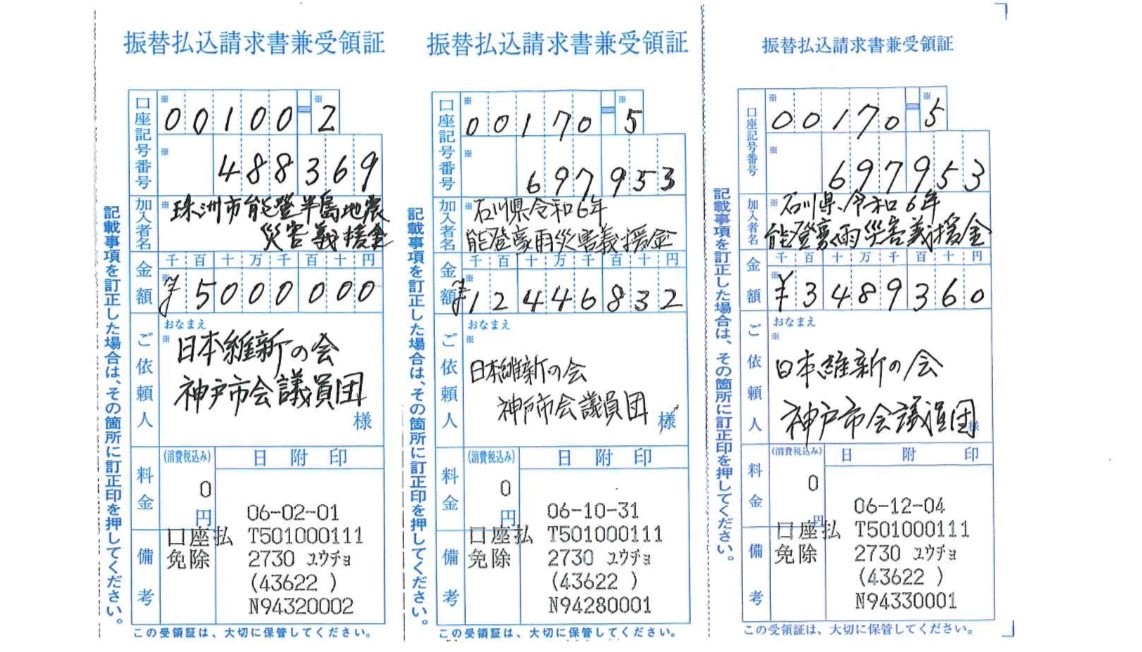 振替払込請求書兼受領証
口座記号番号
※
00100
※
2
※
488369
加入者名
※
珠洲市能登半島地震
災害義援金
金額
千百十万千百十円
※
¥5000000
ご依頼人
おなまえ
※
日本維新の会
神戸市会議員団
様
料金
(消費税込み)
0
円
日附印
06-02-01
口座払 T501000111
免除 2730 ユウチョ
(43622 )
N94320002
備考
記載事項を訂正した場合は、その箇所に訂正印を押してください。
この受領証は、大切に保管してください。
振替払込請求書兼受領証
口座記号番号
※
00170
※
5
※
697953
加入者名
※
石川県令和6年
能登豪雨災害義援金
金額
千百十万千百十円
※
¥12446832
ご依頼人
おなまえ
※
日本維新の会
神戸市会議員団
様
料金
(消費税込み)
0
円
日附印
06-10-31
口座払 T501000111
免除 2730 ユウチョ
(43622 )
N94280001
備考
記載事項を訂正した場合は、その箇所に訂正印を押してください。
この受領証は、大切に保管してください。
振替払込請求書兼受領証
口座記号番号
※
00170
※
5
※
697953
加入者名
※
石川県令和6年
能登豪雨災害義援金
金額
千百十万千百十円
※
¥3489360
ご依頼人
おなまえ
※
日本維新の会
神戸市会議員団
様
料金
(消費税込み)
0
円
日附印
06-12-04
口座払 T501000111
免除 2730 ユウチョ
(43622 )
N94330001
備考
記載事項を訂正した場合は、その箇所に訂正印を押してください。
この受領証は、大切に保管してください。